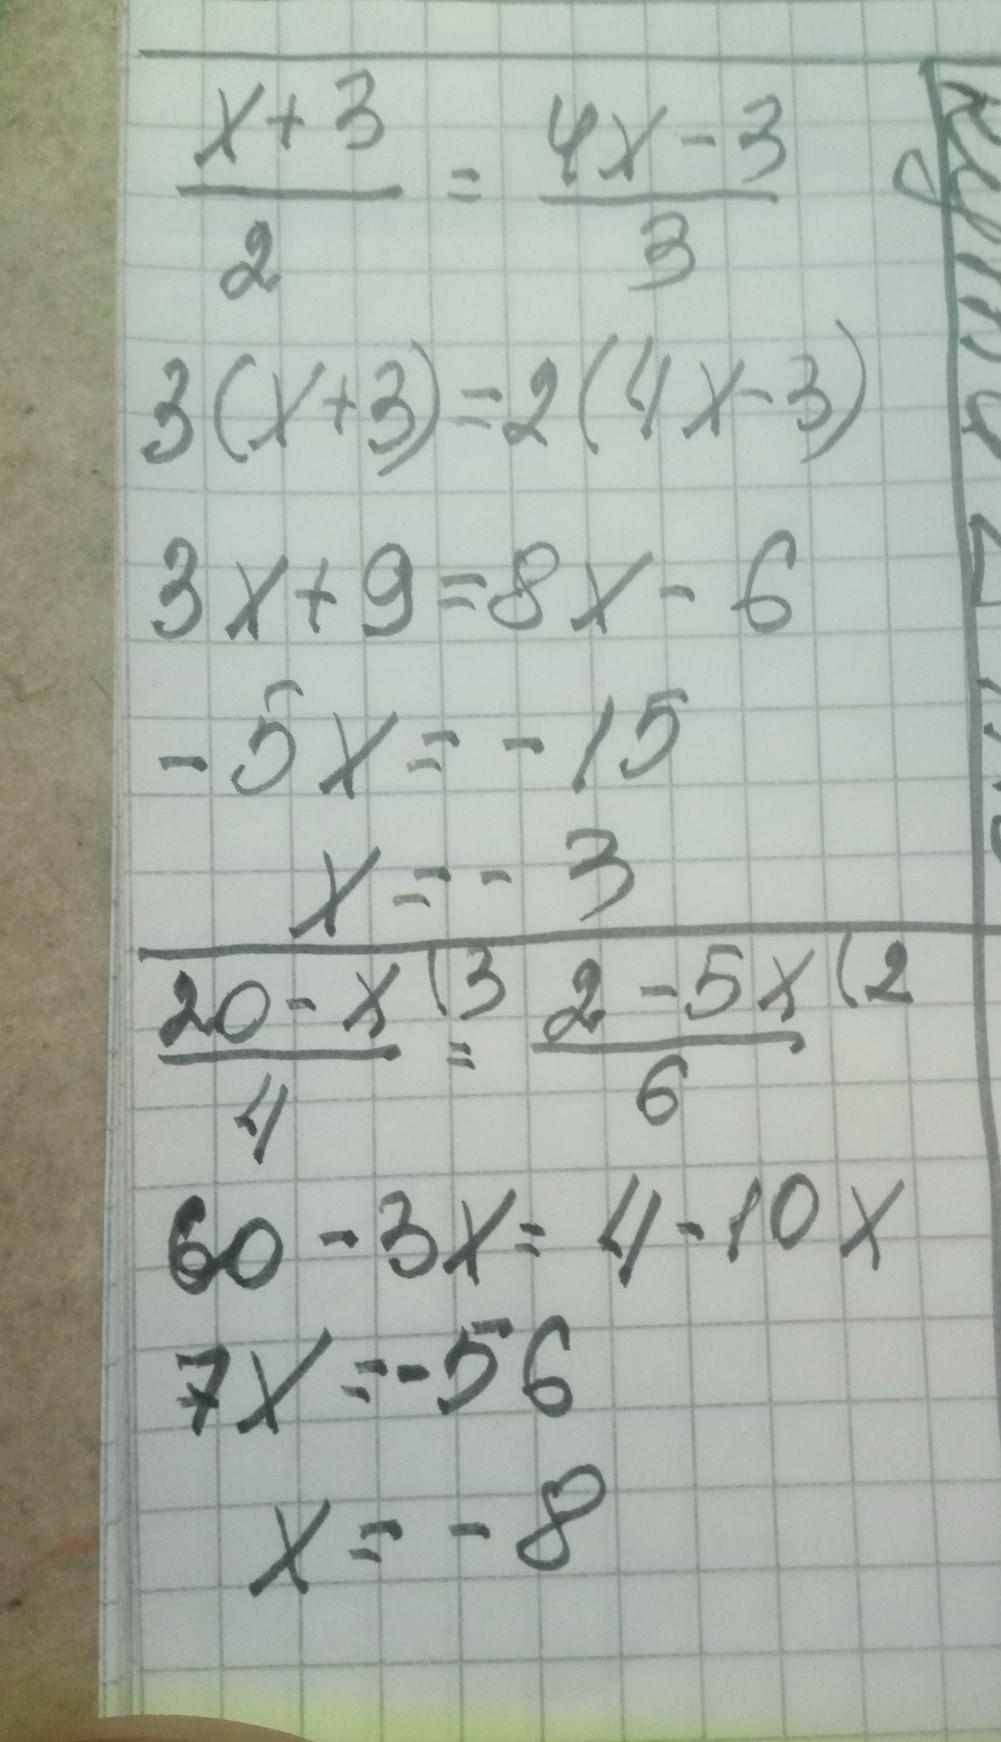 x+3/2 = 4x-3/3
3(x+3)=2(4x-3)
3x+9=8x-6
-5x=-15
x=-3
20-x(3/4 = 2-5x(2/6
60-3x=4-10x
7x=-56
x=-8